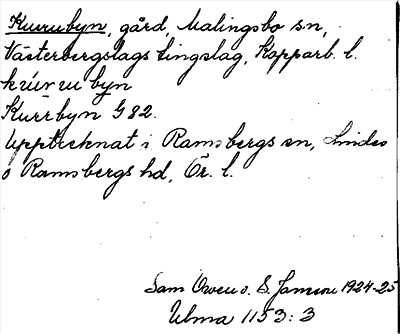 Kurubyn, gård, Malingsbo sn,
Västerbergslags tingslag, Kopparb. l.
kúrru byn
Kurrbyn G 82.
Upptecknat i Ramsbergs sn, Lindes
o Ramsbergs hd, Ör. l.
Sam Owen o. S. Janson 1924-25
Ulma 1153:3